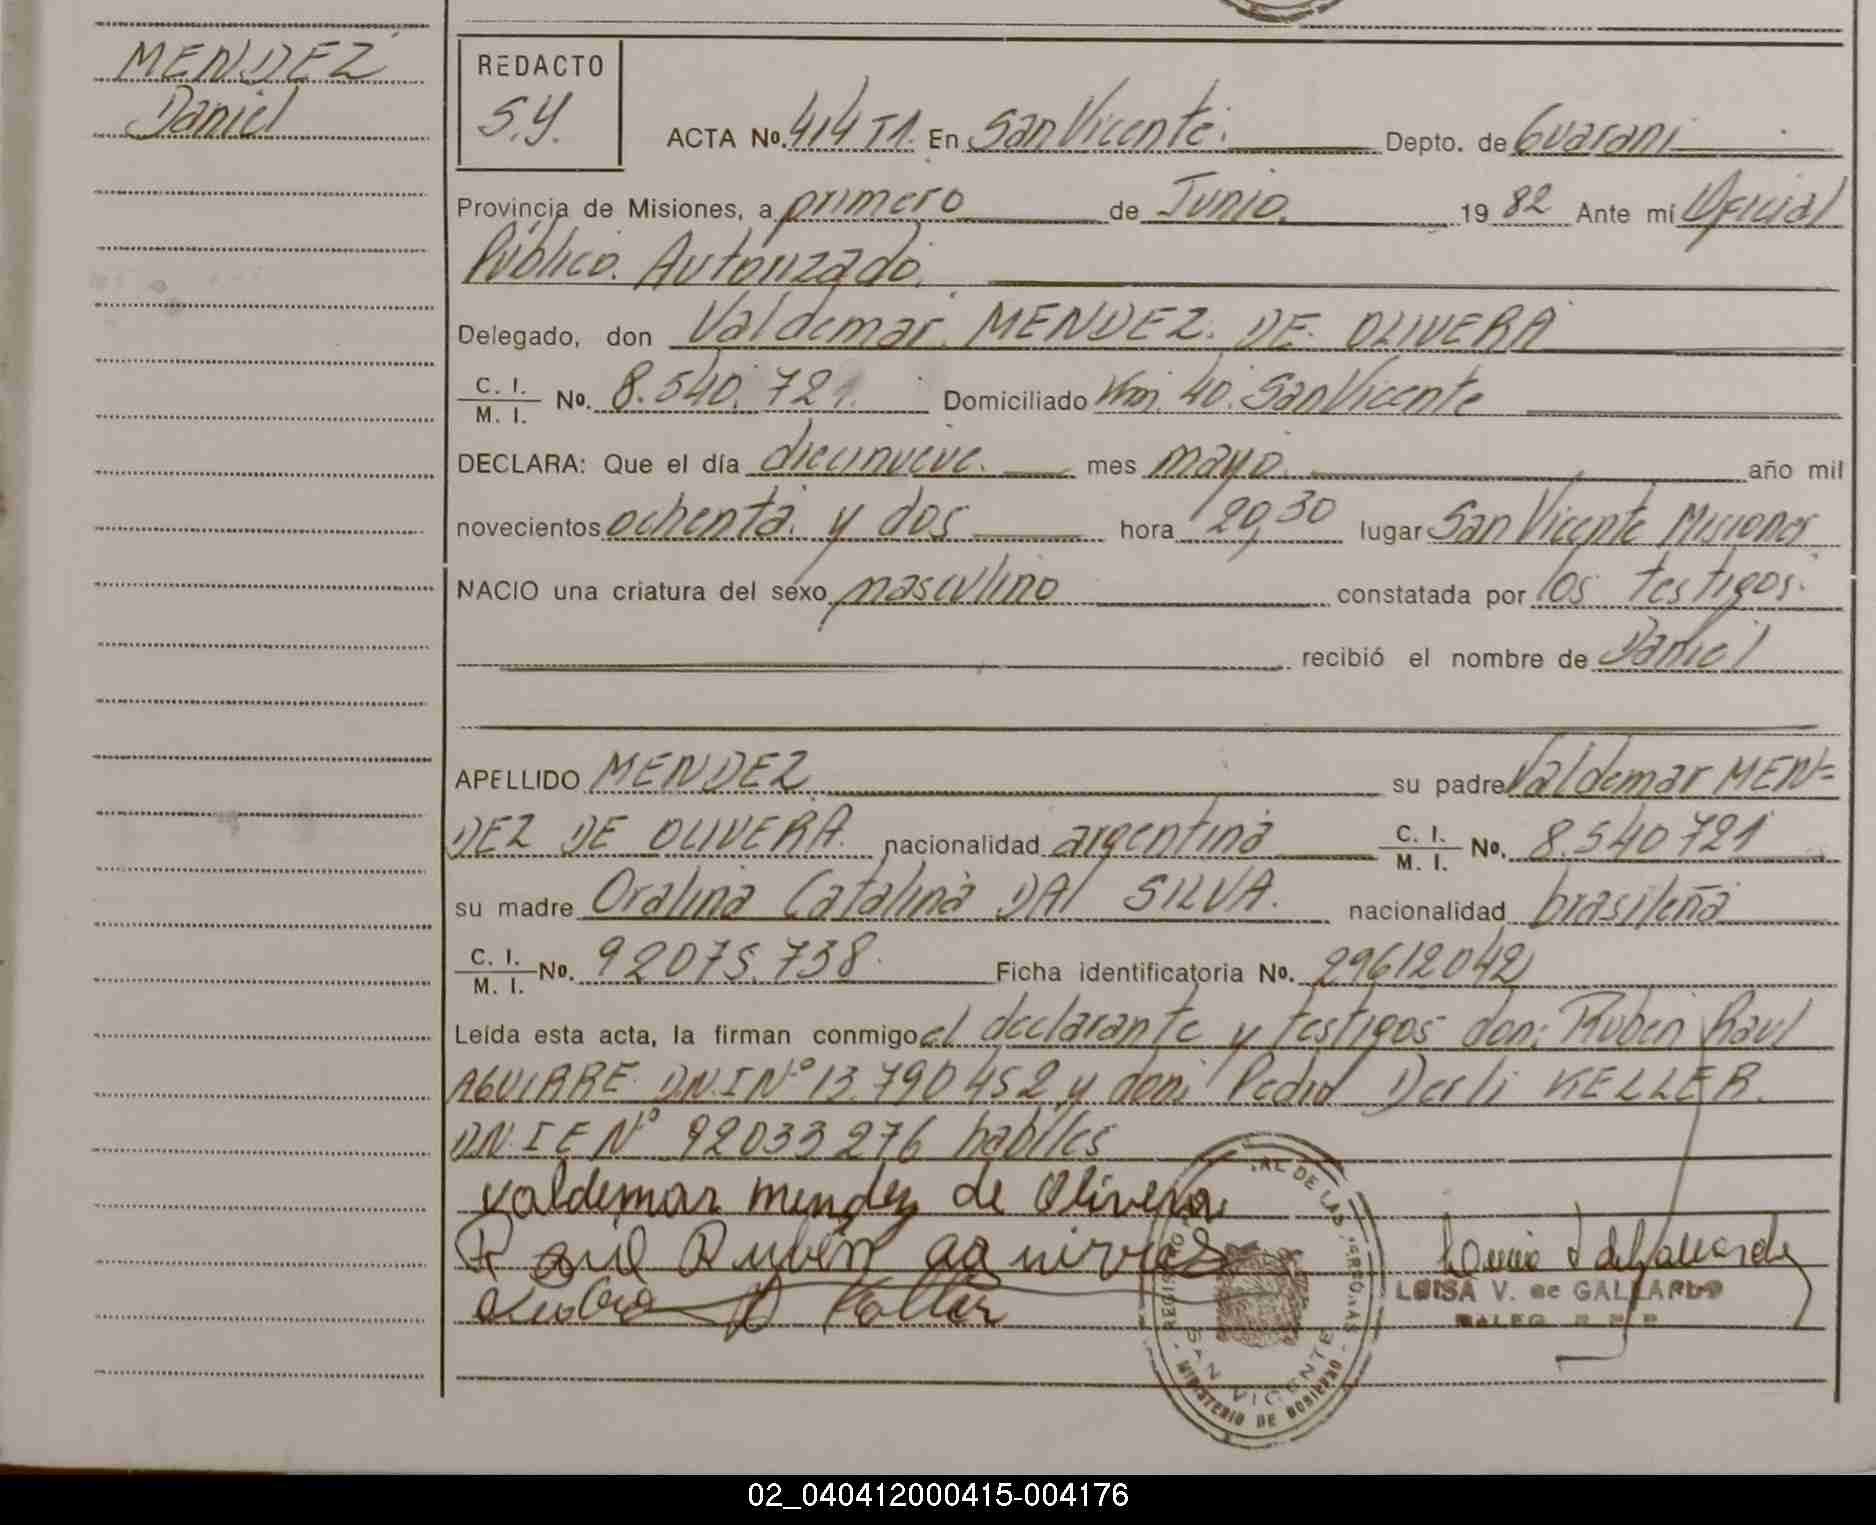 MENDEZ
Daniel
REDACTO
S.Y.
ACTA No. 414 T1. En San Vicente. Depto. de Guarani
Provincia de Misiones, a primero de Junio. 19 82 Ante mí Oficial
Público. Autorizado.
Delegado, don Valdemar. MENDEZ. DE. OLIVERA
C. I. / M. I. No. 8.540.721. Domiciliado Km. 40. San Vicente
DECLARA: Que el día diecinueve. mes mayo. año mil
novecientos ochenta. y dos hora 20,30 lugar San Vicente Misiones
NACIO una criatura del sexo masculino constatada por los testigos.
recibió el nombre de Daniel
APELLIDO MENDEZ su padre Valdemar MEN=
DEZ DE OLIVERA. nacionalidad argentina C. I. / M. I. No. 8.540721
su madre Oralina Catalina DA SILVA. nacionalidad brasileña
C. I. / M. I. No. 92075.738. Ficha identificatoria No. 29612042
Leída esta acta, la firman conmigo el declarante y testigos don: Ruben Raul
AGUIRRE D.N.I Nº 13.790452 y don: Pedro Derli KELLER.
D.N.I E Nº 92033276 habiles
Valdemar mendez de Olivera
Raul Rubén aguirres
Keller
LUISA V. de GALLARDO
REGISTRO AL DE LAS PERSONAS
SAN VICENTE
MINISTERIO DE GOBIERNO
02_040412000415-004176